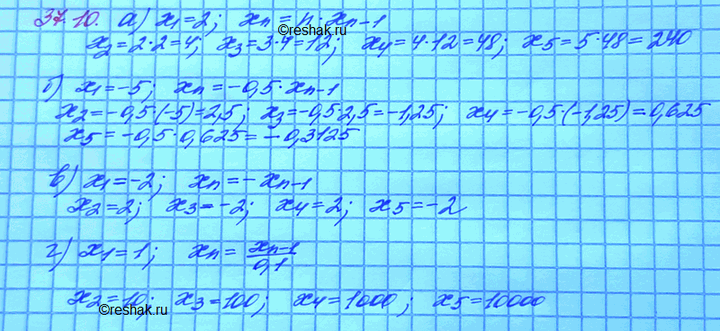 37.10. а) x₁=2; xₙ = n · xₙ₋₁
©reshak.ru
x₂=2·2=4; x₃=3·4=12; x₄=4·12=48; x₅=5·48=240
б) x₁=-5; xₙ=-0,5·xₙ₋₁
x₂=-0,5·(-5)=2,5; x₃=-0,5·2,5=-1,25; x₄=-0,5·(-1,25)=0,625
x₅=-0,5·0,625=-0,3125
в) x₁=-2; xₙ=-xₙ₋₁
x₂=2; x₃=-2; x₄=2; x₅=-2
г) x₁=1; xₙ= xₙ₋₁/0,1
x₂=10; x₃=100; x₄=1000; x₅=10000
©reshak.ru